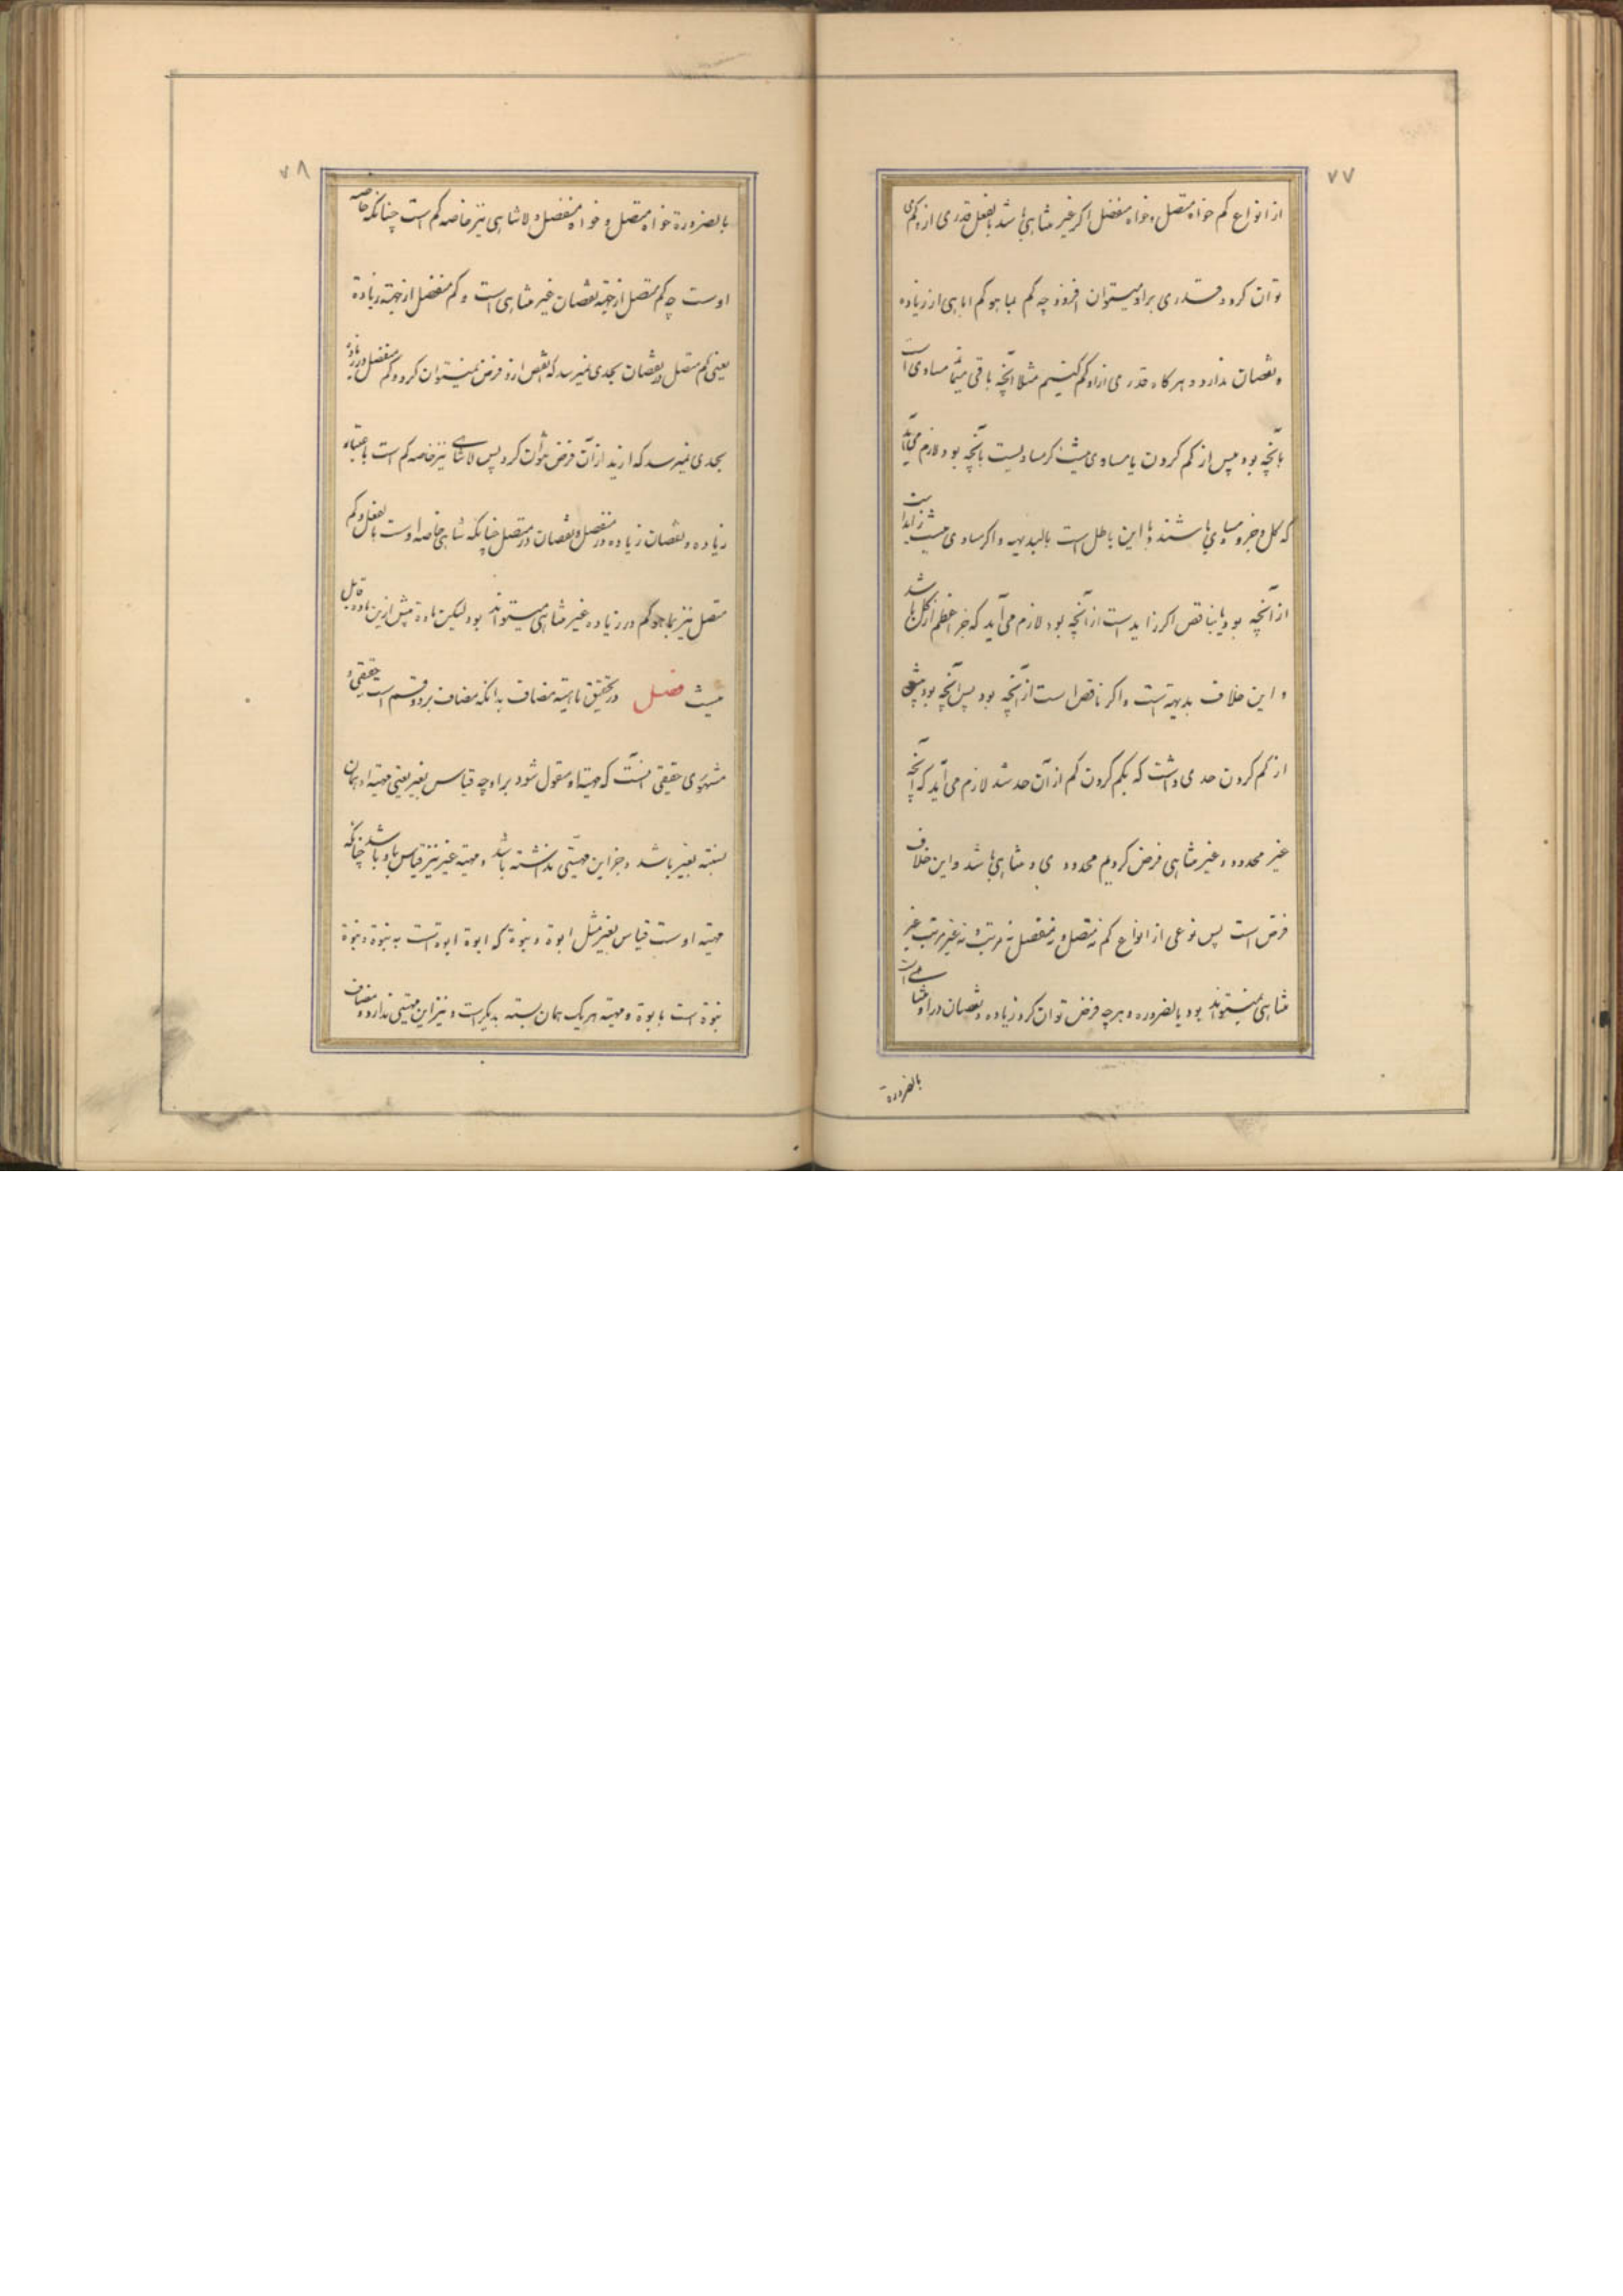 ۷۷
از انواع کم خواه متصل و خواه منفصل اکر غیر متناهی باشد بالفعل قدری از و کم
توان کرد و قدری بر او میتوان افزود چه کم بما هو کم ابایی از زیاده
و نقصان ندارد و هر کاه قدری از او کم کنیم مثلا آنچه باقی میماند مساوی است
بآنچه بود پیش از کم کردن یا مساوی نیست اکر مساویست بآنچه بود لازم می‌آید
که کل و جزو مساوی باشند و این باطل است بالبدیهه و اکر مساوی نیست زایدست
از آنچه بود یا ناقص اکر زایدست از آنچه بود لازم می‌آید که جزء اعظم از کل باشد
و این خلاف بدیهه است و اکر ناقص است از آنچه بود پس آنچه بود پیش
از کم کردن حدی داشت که بکم کردن کم از آن حد شد لازم می‌آید که آنچه
غیر محدود و غیر متناهی فرض کردیم محدود و متناهی باشد و این خلاف
فرض است پس نوعی از انواع کم نه متصل و نه منفصل نه مرتب و نه غیر مرتب غیر
متناهی نمیتواند بود بالضروره و هرچه فرض توان کرد زیاده و نقصان در او متناهی است
بالضرورة
۷۸
بالضرورة خواه متصل و خواه منفصل و لاتناهی نیز خاصه کم است چنانکه خاصه
اوست چه کم متصل از جهة نقصان غیر متناهی است و کم منفصل از جهة زیادة
یعنی کم متصل در نقصان بحدی نمیرسد که انقص ازو فرض نمیتوان کرد و کم منفصل در زیاده
بحدی نمیرسد که ازید از آن فرض نتوان کرد پس لاتناهی نیز خاصه کم است باعتبار
زیاده و نقصان زیاده در منفصل و نقصان در متصل چنانکه تناهی خاصه اوست بالفعل و کم
متصل نیز بما هو کم در زیاده غیر متناهی میتواند بود لیکن ماده پیش ازین ماده قابل
نیست فصل در تحقیق ماهیة مضاف بدانکه مضاف بر دو قسم است حقیقی و
مشهوری حقیقی آنست که مهیة او مقول شود بر او چه قیاس بغیر یعنی مهیة او همان
نسبة بغیر باشد و جز این مهیتی نداشته باشد و مهیة غیر نیز قیاس باو باشد چنانکه
مهیة اوست قیاس بغیر مثل ابوة و بنوة که ابوة ابوة است به بنوة و بنوة
بنوة است بابوة و مهیة هر یک همان نسبة بدیکر است و نیز این مهیتی ندارد و مضاف